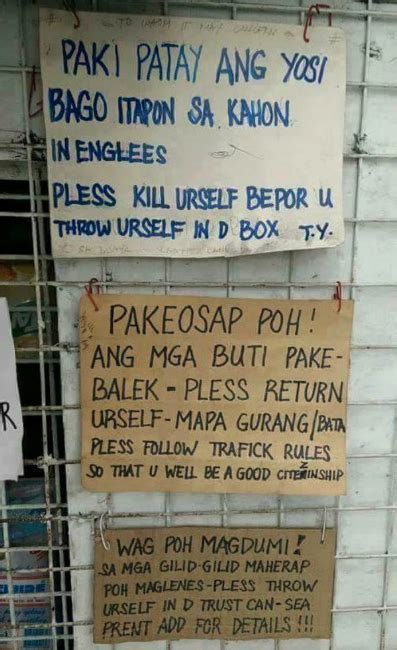 PAKI PATAY ANG YOSI
BAGO ITAPON SA KAHON
IN ENGLEES
PLESS KILL URSELF BEPOR U
THROW URSELF IN D BOX T.Y.
PAKEOSAP POH!
ANG MGA BUTI PAKE-
BALEK - PLESS RETURN
URSELF - MAPA GURANG/BATA
PLESS FOLLOW TRAFICK RULES
SO THAT U WELL BE A GOOD CITEZINSHIP
WAG POH MAGDUMI!
SA MGA GILID-GILID MAHERAP
POH MAGLENES-PLESS THROW
URSELF IN D TRUST CAN-SEA
PRENT ADD FOR DETAILS!!!
R